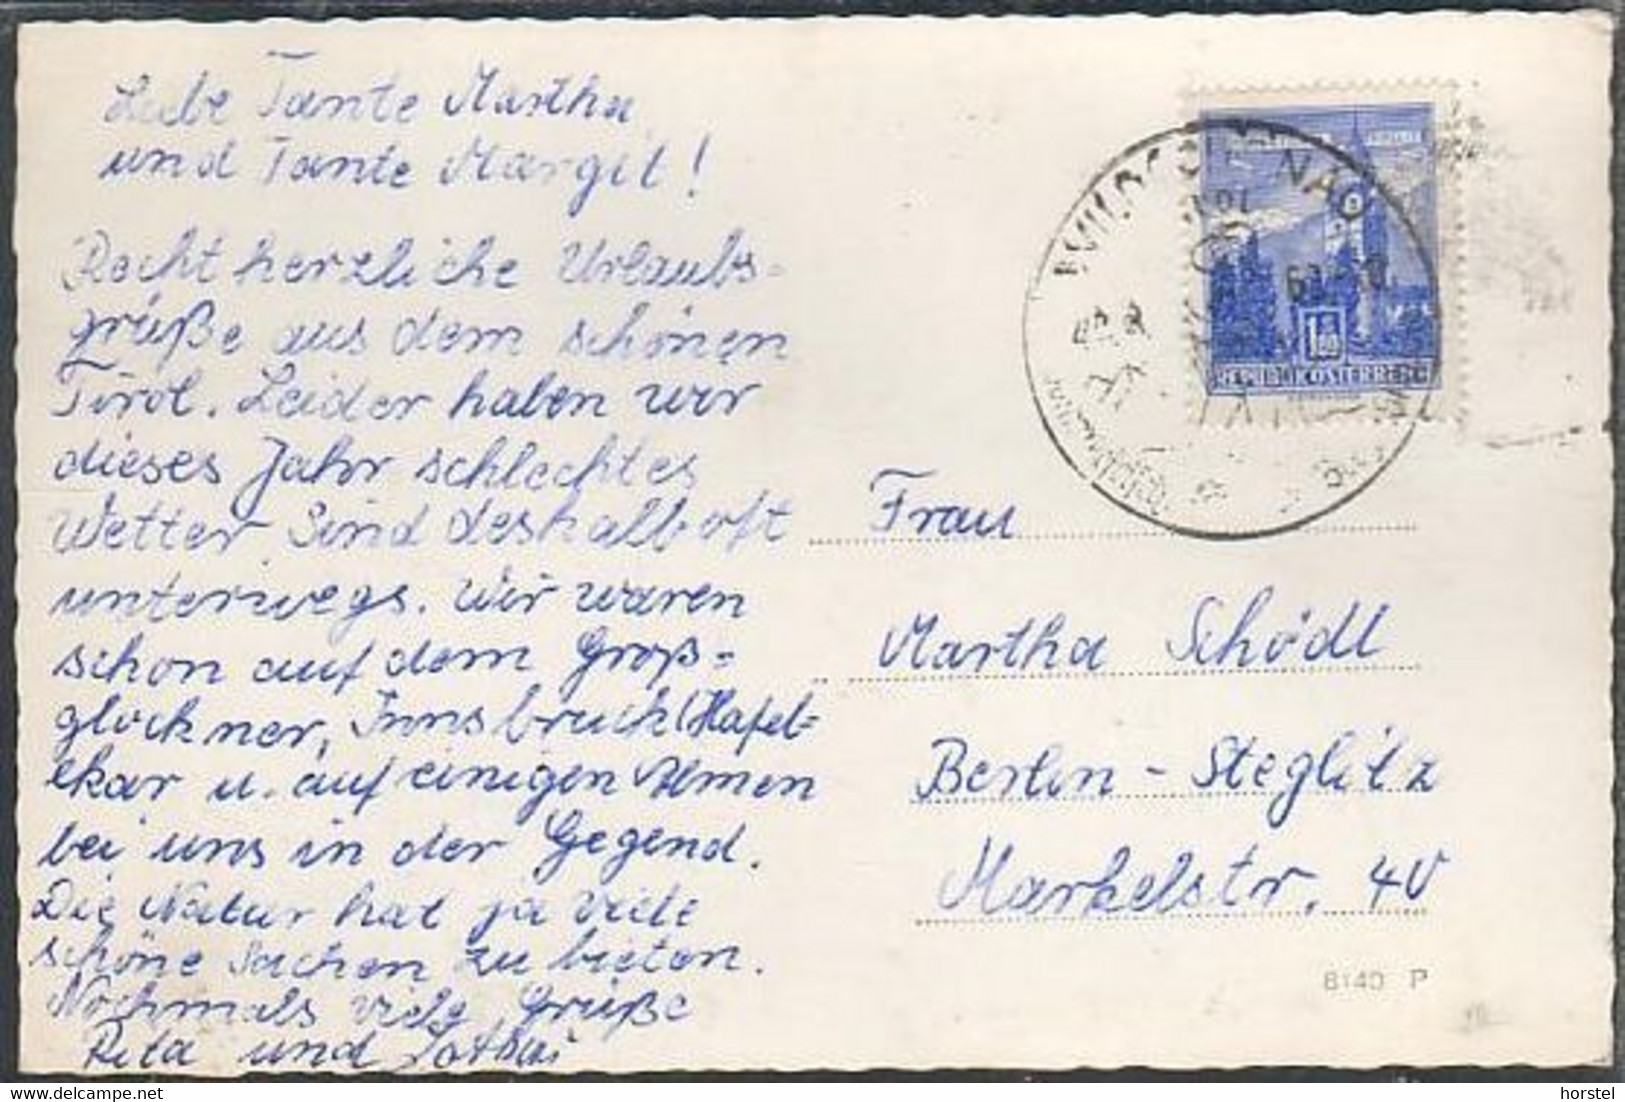 Liebe Tante Martha
und Tante Margit!
Recht herzliche Urlaubs=
grüße aus dem schönen
Tirol. Leider haben wir
dieses Jahr schlechtes
Wetter. Sind deshalb oft
unterwegs. Wir waren
schon auf dem Groß=
glockner, Innsbruck (Hafel=
ekar u. auf einigen Almen
bei uns in der Gegend.
Die Natur hat ja viele
schöne Sachen zu bieten.
Nochmals viele Grüße
Rita und
REPUBLIK ÖSTERREICH
Frau
Martha Schödl
Berlin-Steglitz
Markelstr. 40
8140 P
delcampe.net
horstel